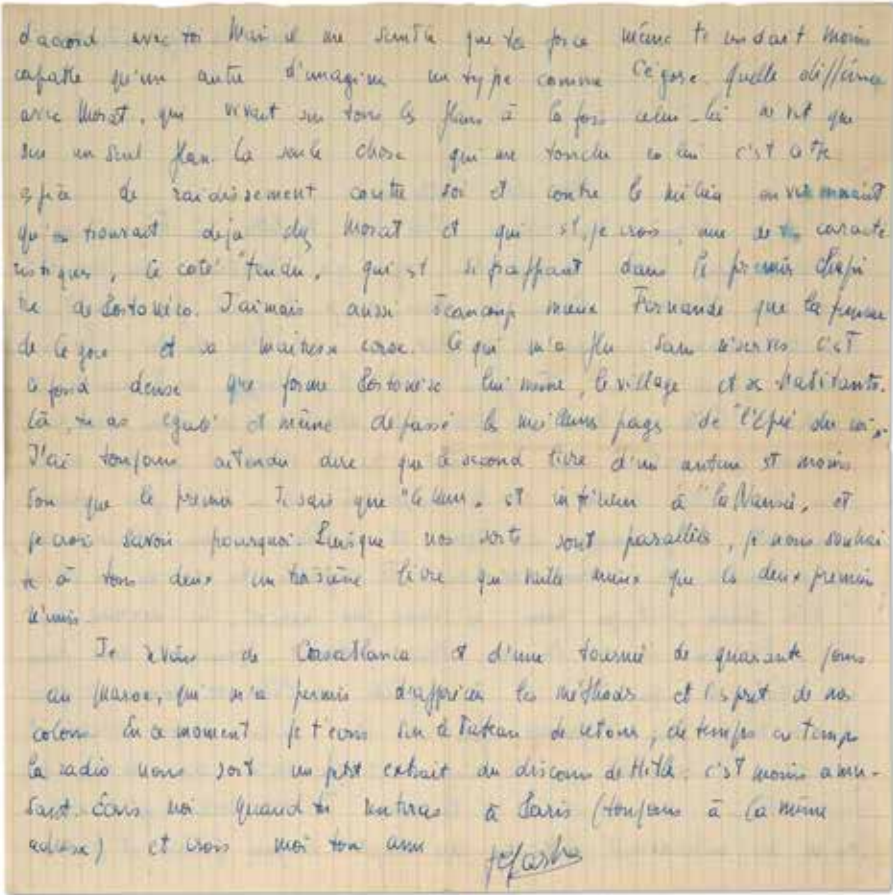 d'accord avec toi Mais il me semble que ta force même te rendait moins
capable qu'un autre d'imaginer un type comme Cégare. Quelle différence
avec Morat, qui vivait sur tous les plans à la fois celui-là ne vit que
sur un seul plan. La seule chose qui me touche en lui c'est cette
espèce de raidissement contre soi et contre le milieu environnant
qu'on trouvait déjà chez Morat et qui est, je crois, une de tes caracté
ristiques, le coté "tendu", qui est si frappant dans le premier chapi
tre de Portovéro. J'aimais aussi beaucoup mieux Fernande que la femme
de et sa maitresse corse. Ce qui m'a plu sans réserves c'est
ce fond dense que forme Portovéro lui même, le village et ses habitants.
Là, tu as égalé et même dépassé les meilleurs pages de "l'Epée du roi".
J'ai toujours entendu dire que le second livre d'un auteur est moins
bon que le premier. Je sais que "le Mur", est inférieur à "la Nausée", et
je crois savoir pourquoi. Puisque nos sorts sont parallèles, je nous souhai
te à tous deux un troisième livre qui vaille mieux que les deux premiers
réunis
Je reviens de Casablanca et d'une tournée de quarante jours
au Maroc, qui m'a permis d'apprécier les méthodes et l'esprit de nos
colons. En ce moment je t'écris sur le bateau de retour, de temps en temps
la radio nous sort un petit extrait du discours de Hitler: c'est moins amu-
sant. Ecris moi quand tu rentreras à Paris (toujours à la même
adresse) et crois moi ton ami